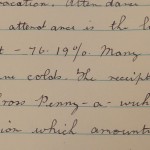 vacation. Attendance
attendance is the l
t - 76.19% Many
colds. The receipt
ross Penny-a-week
ion which amount